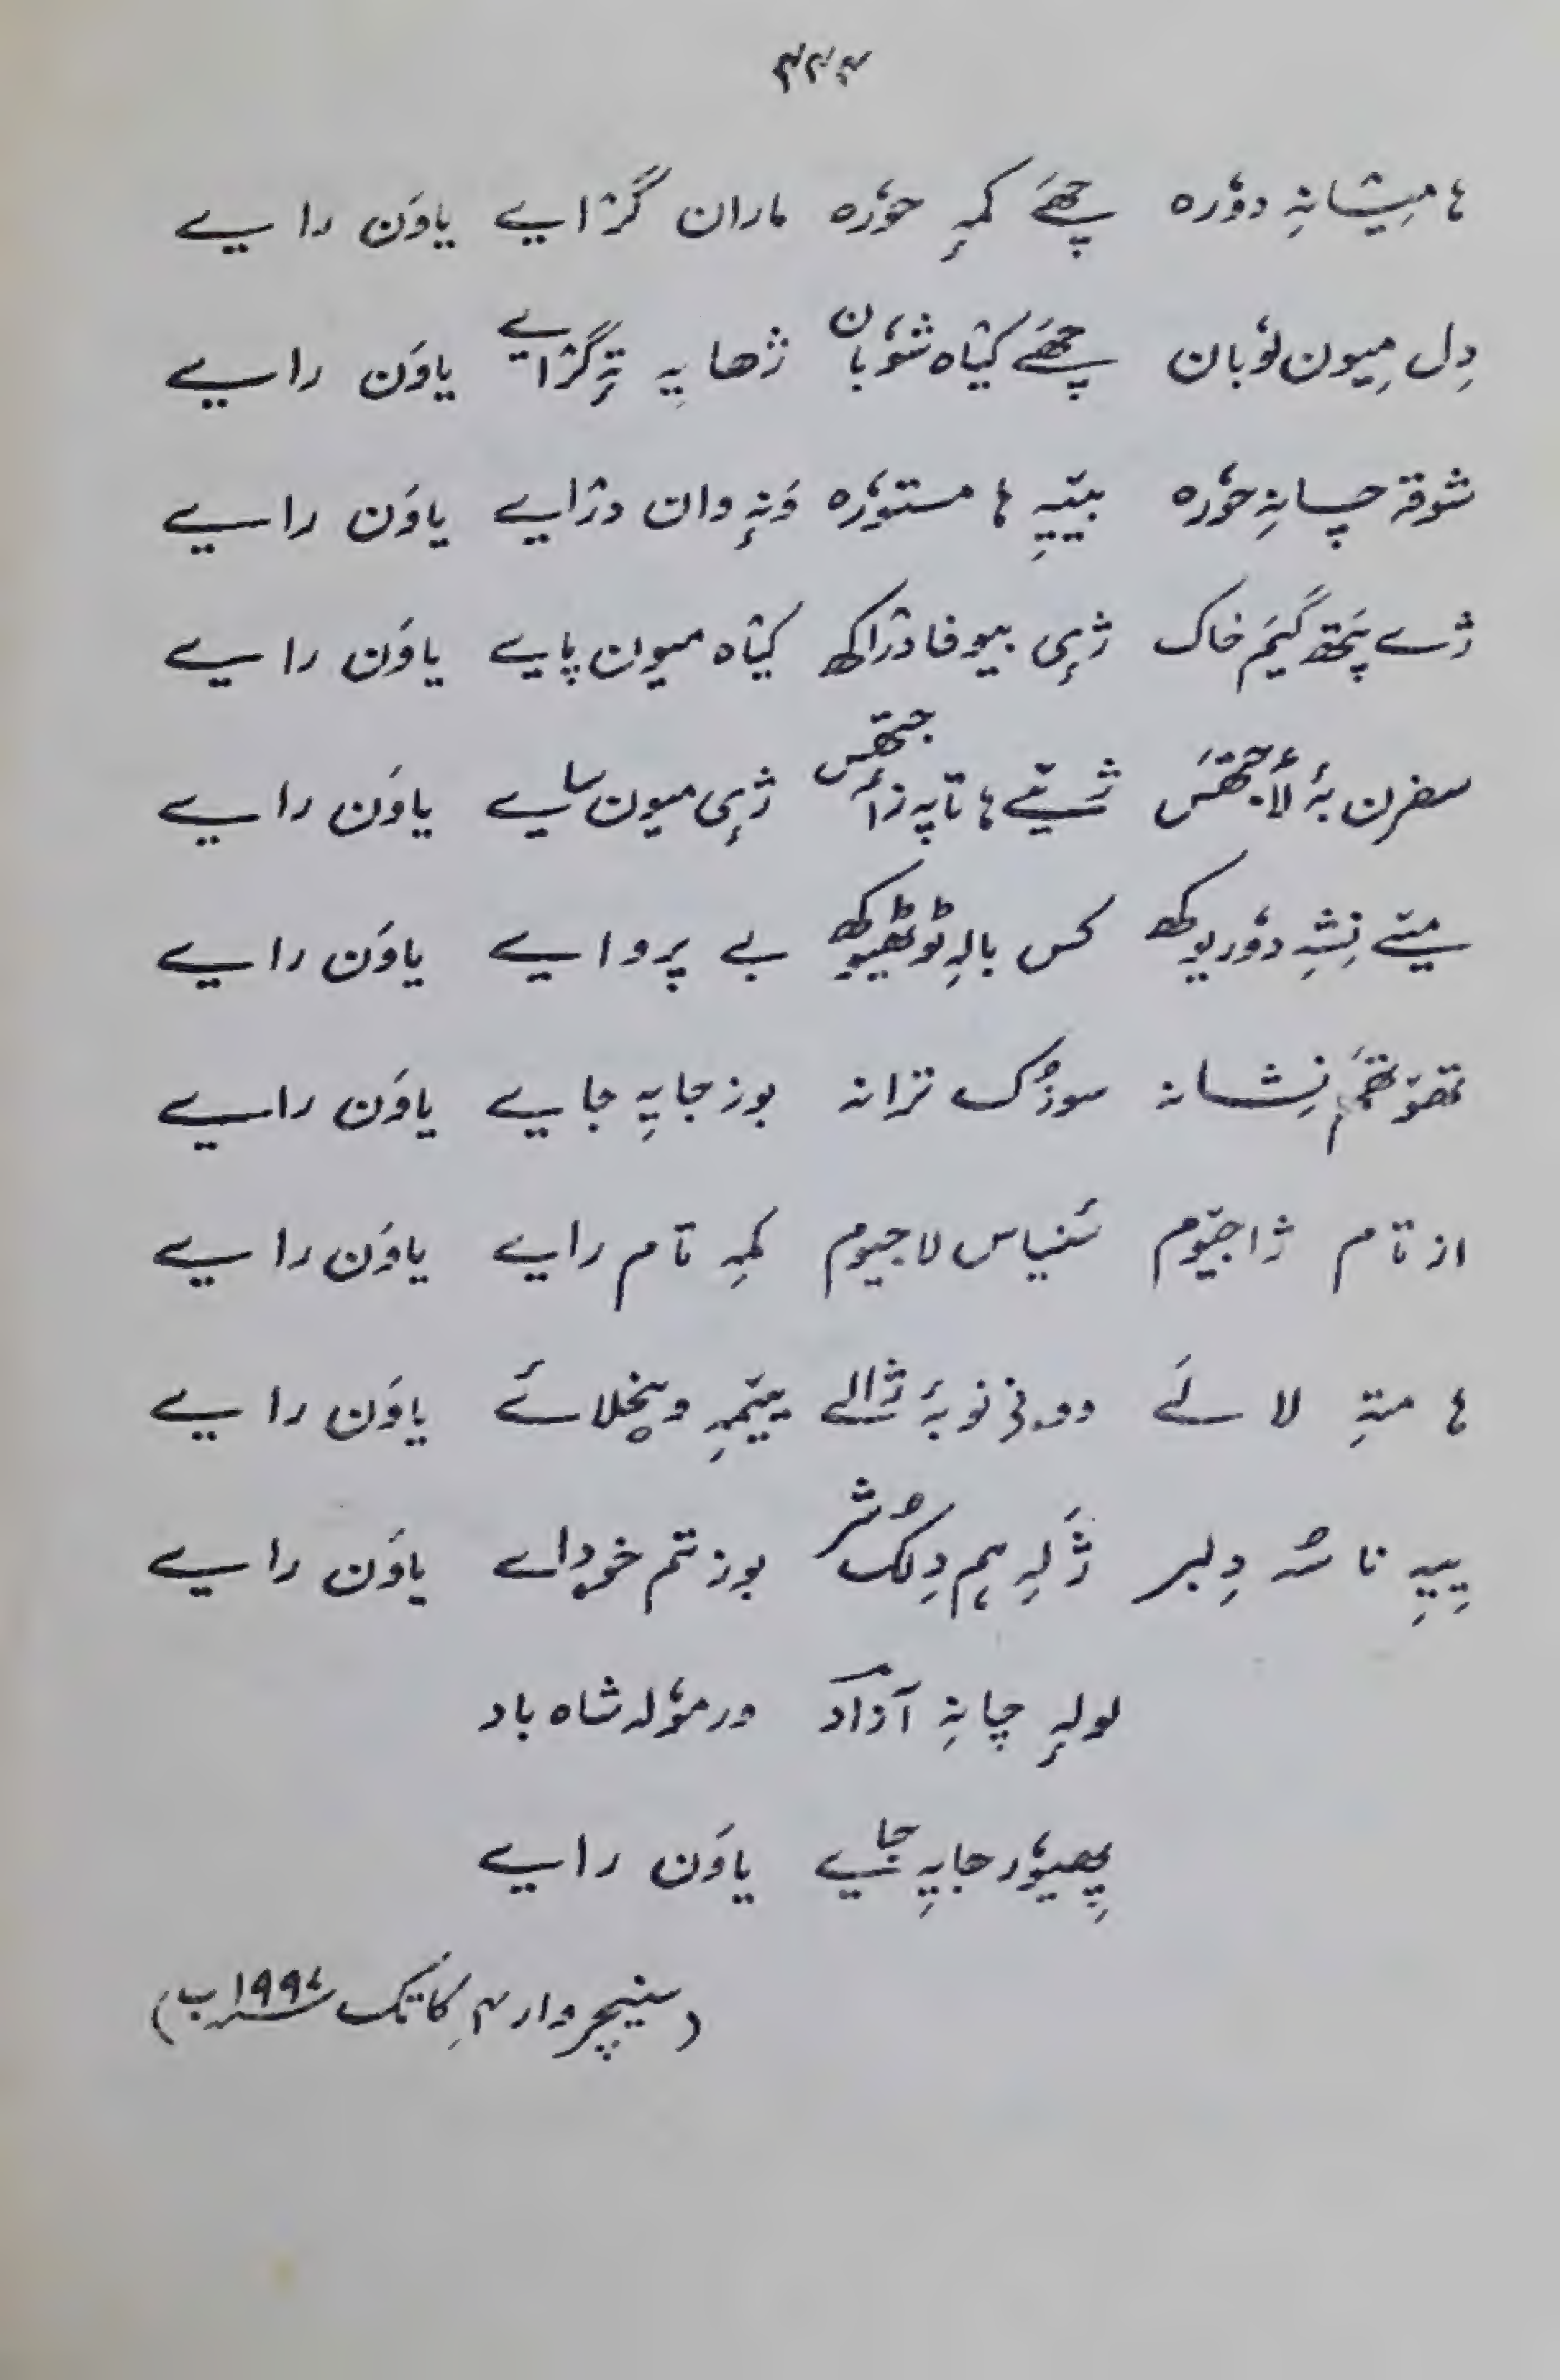 ۴۲۴
ہا مِیشانہِ دوٗرہ چھَے کمہِ حوٗرہ ماران گژایے یاوَن رایے
دِل میون لوٗبان چھَے کیٛاہ شوٗبان ژھایہِ تہٕ گژایے یاوَن رایے
شوقہ چانہِ حوٗرہ بیٚیہِ ہا مستوٗرہ وَنہٕ وان دژایے یاوَن رایے
ژے پَتھ گیَم خاک ژٕی بیوفا دژاکھ کیٛاہ میون پایے یاوَن رایے
سفرن بہٕ لٲجتھَس ژیتے ہا تاپہ زٲجتھس ژٕی میون سایے یاوَن رایے
میتے نِشہِ دوٗریوکھ کس بالہِ ٹوٹھیوکھ بے پروایے یاوَن رایے
تھوٚتھَم نِشانہ سوزُک ترانہ بوز جایہِ جایے یاوَن رایے
از تام ژاجیوم سَنیاس لاجیوم کمہِ تام رایے یاوَن رایے
ہا متہِ لالَے دونی نو بہٕ ژالے ییٚمہِ ویٚخلائے یاوَن رایے
ییٚیہِ نا سُہ دِلبر ژَلہِ ہم دِلُک شر بوزتم خوداے یاوَن رایے
لولہٕ چانہِ آزاد ورموٗلہ شاہ باد
پھیوٗر جایہِ جایے یاوَن رایے
(سنیچروار ۴ کاتک ۱۹۹۴ب)